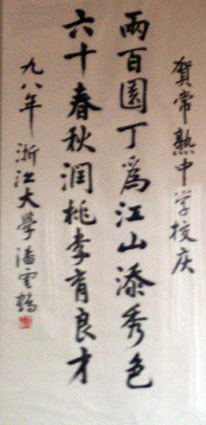 賀常熟中学校庆
兩百園丁爲江山添秀色
六十春秋润桃李育良才
九八年 浙江大學 潘雲鶴